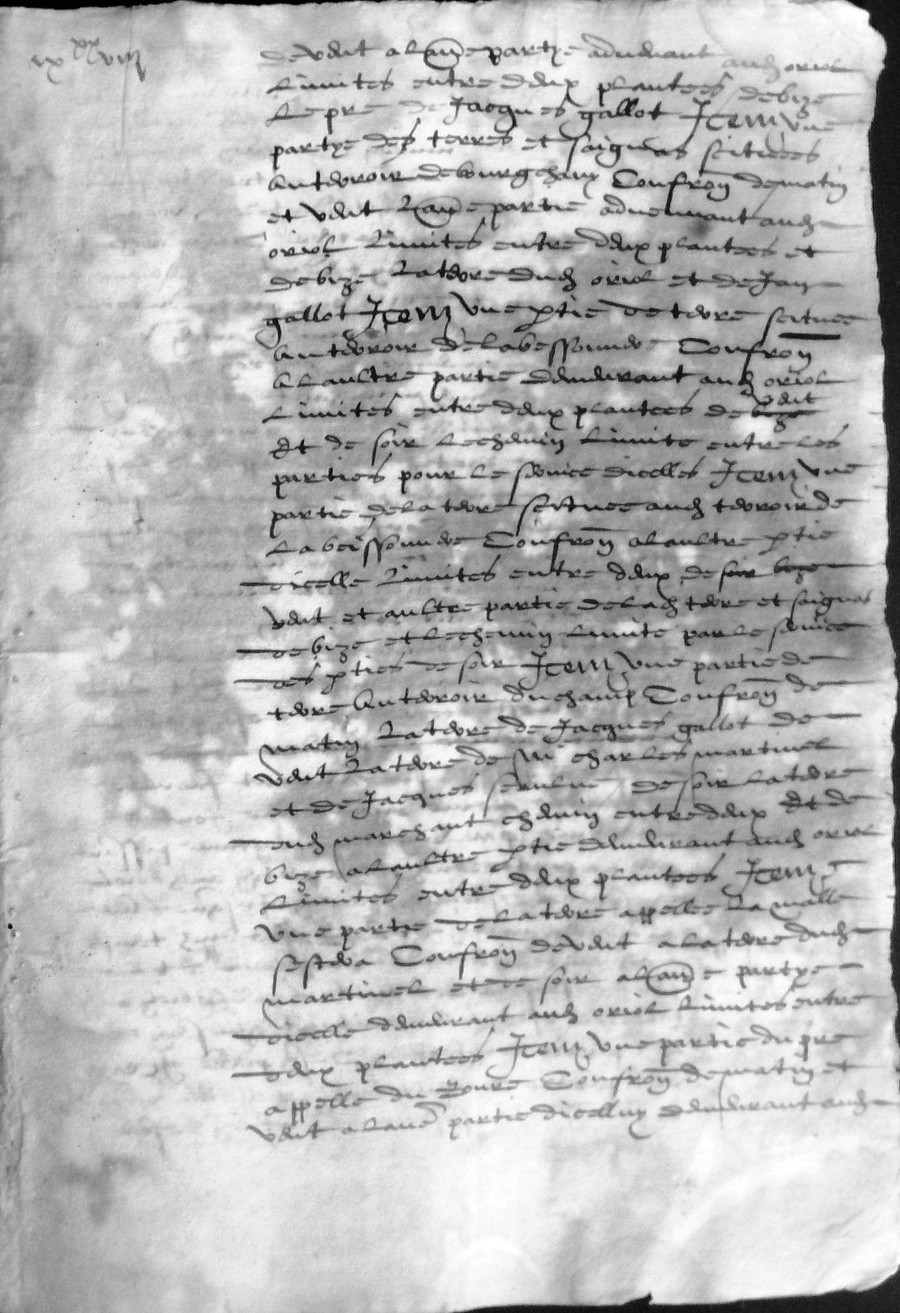 ix xx viii
de vent a lautre partye advenant aud oriol
Limites entre deux plantees de bize
Le pre de Jacques gallot Jtem une
partye des terres et saignas scituees
au terroir de bourgchany Confron de matin
et vent Lautre partie advenant aud
oriol Limites entre deux plantees et
de bize La terre dud oriol et de Jan
gallot Jtem une ptie de terre scituee
au terroir de labessonnee Confron
a laultre partie demeurant aud oriol
Limites entre deux plantees de vent
Et de soir le chemin Limite entre les
parties pour le service dicelles Jtem une
partie de la terre scituee aud terroir de
La beissonnee Confron a laultre ptie
dicelle Limites entre deux de bize
vent et aultre partie de lad terre et saignas
de bize et le chemin limite par le service
des pties de soir Jtem une partie de
terre au terroir du champ Confron de
matin La terre de Jacques gallot de
vent La terre de Mr charles martinel
et de Jacques de soir la terre
dud marchant chemin entre deux Et de
bize a laultre ptie demeurant aud oriol
Limites entre deux plantees Jtem
une partye de la terre appellee La malle
sestera Confron de vent a la terre dud
martinel et de soir a lautre partye
dicelle demeurant aud oriol Limites entre
deux plantees Jtem une partie du pre
appelle du Confron de matin et
vent a lautre partie dicelluy demeurant aud